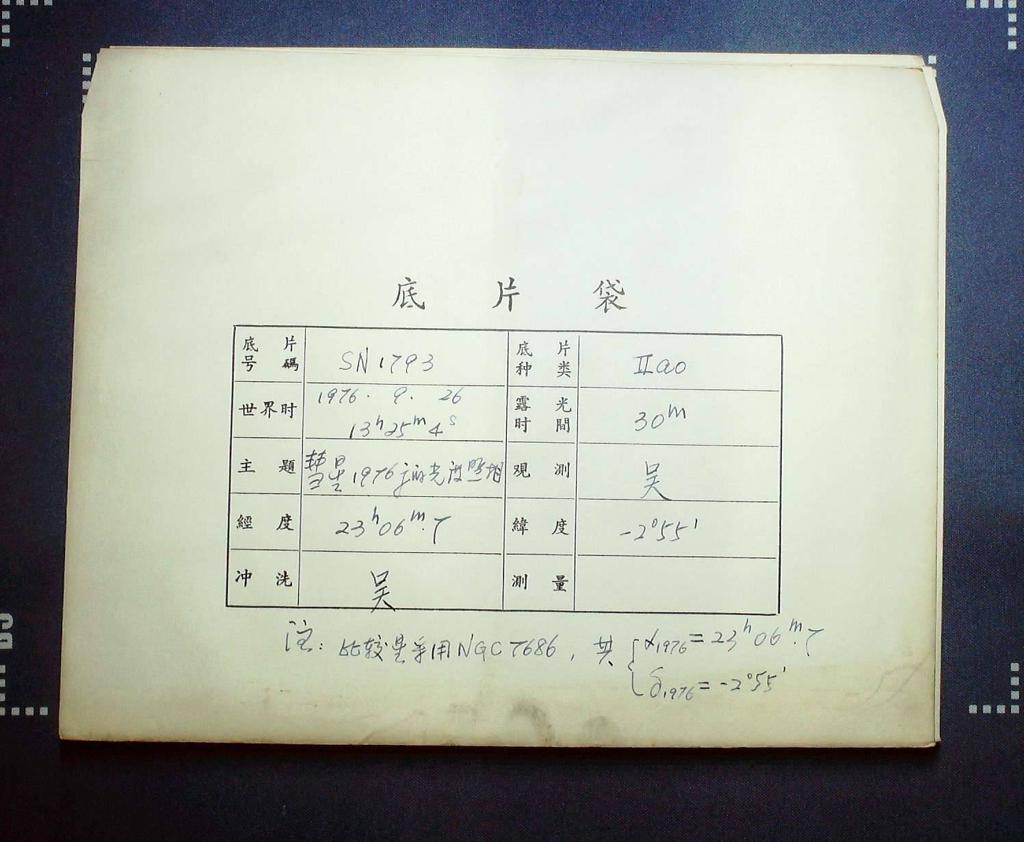 底 片 袋
底片号碼 SN1793 底片种类 IIao
世界时 1976. 9. 26 13h25m4s 露光时間 30m
主題 彗星1976 光度照相 观測 吴
經度 23h06m.7 緯度 -2°55'
冲洗 吴 測量
注: 比较星采用NGC7686, 其 { α1976=23h06m.7
δ1976=-2°55'